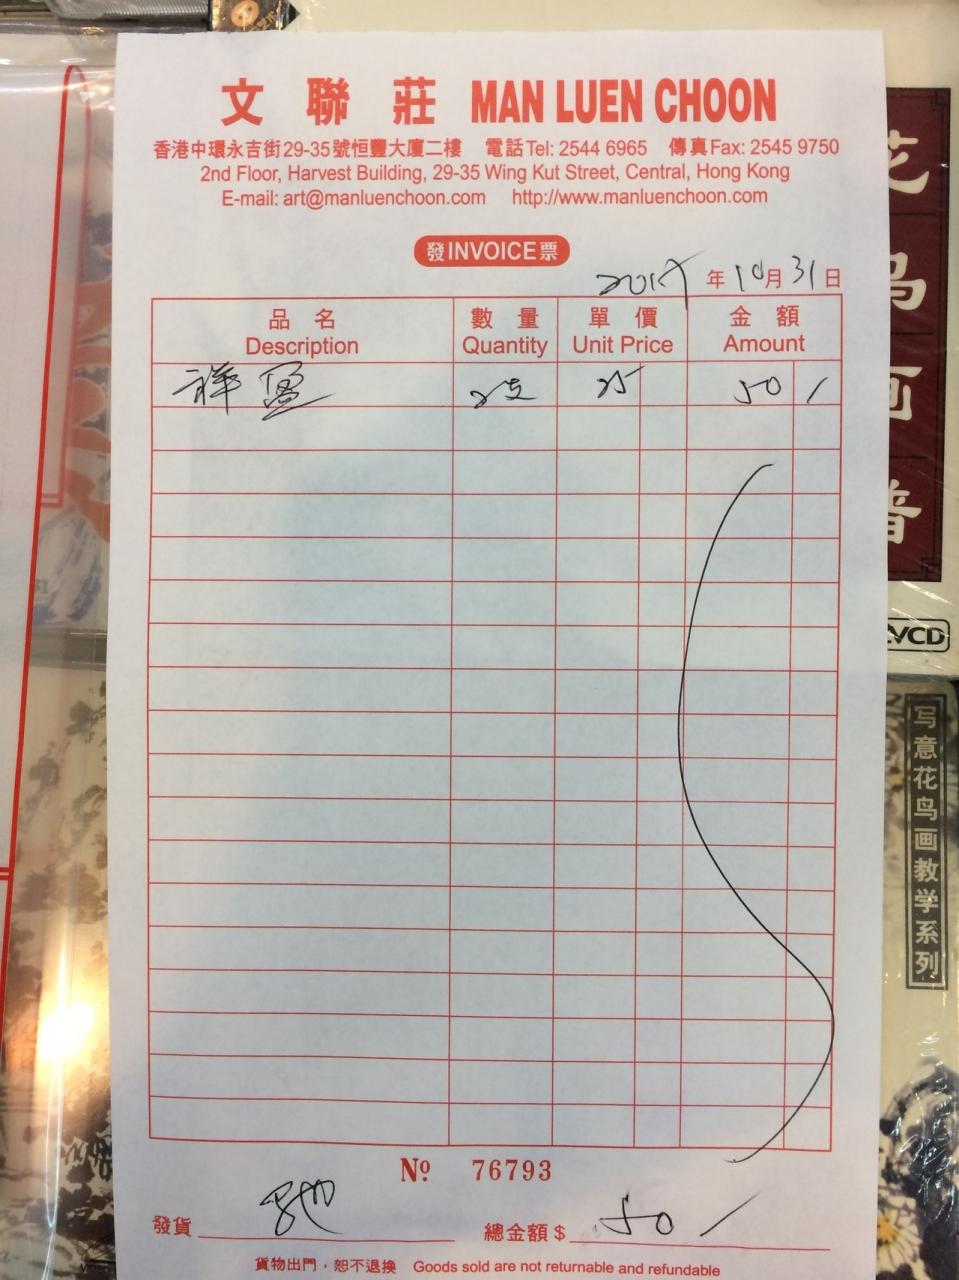 文聯莊 MAN LUEN CHOON
香港中環永吉街29-35號恒豐大廈二樓 電話Tel: 2544 6965 傳真Fax: 2545 9750
2nd Floor, Harvest Building, 29-35 Wing Kut Street, Central, Hong Kong
E-mail: art@manluenchoon.com http://www.manluenchoon.com
發INVOICE票
2017 年 10 月 31 日
品名 數量 單價 金額
Description Quantity Unit Price Amount
2支 25 50 /
Nº 76793
發貨 總金額 $ 50 /
貨物出門，恕不退換 Goods sold are not returnable and refundable
花
鸟
画
普
VCD
写意花鸟画教学系列